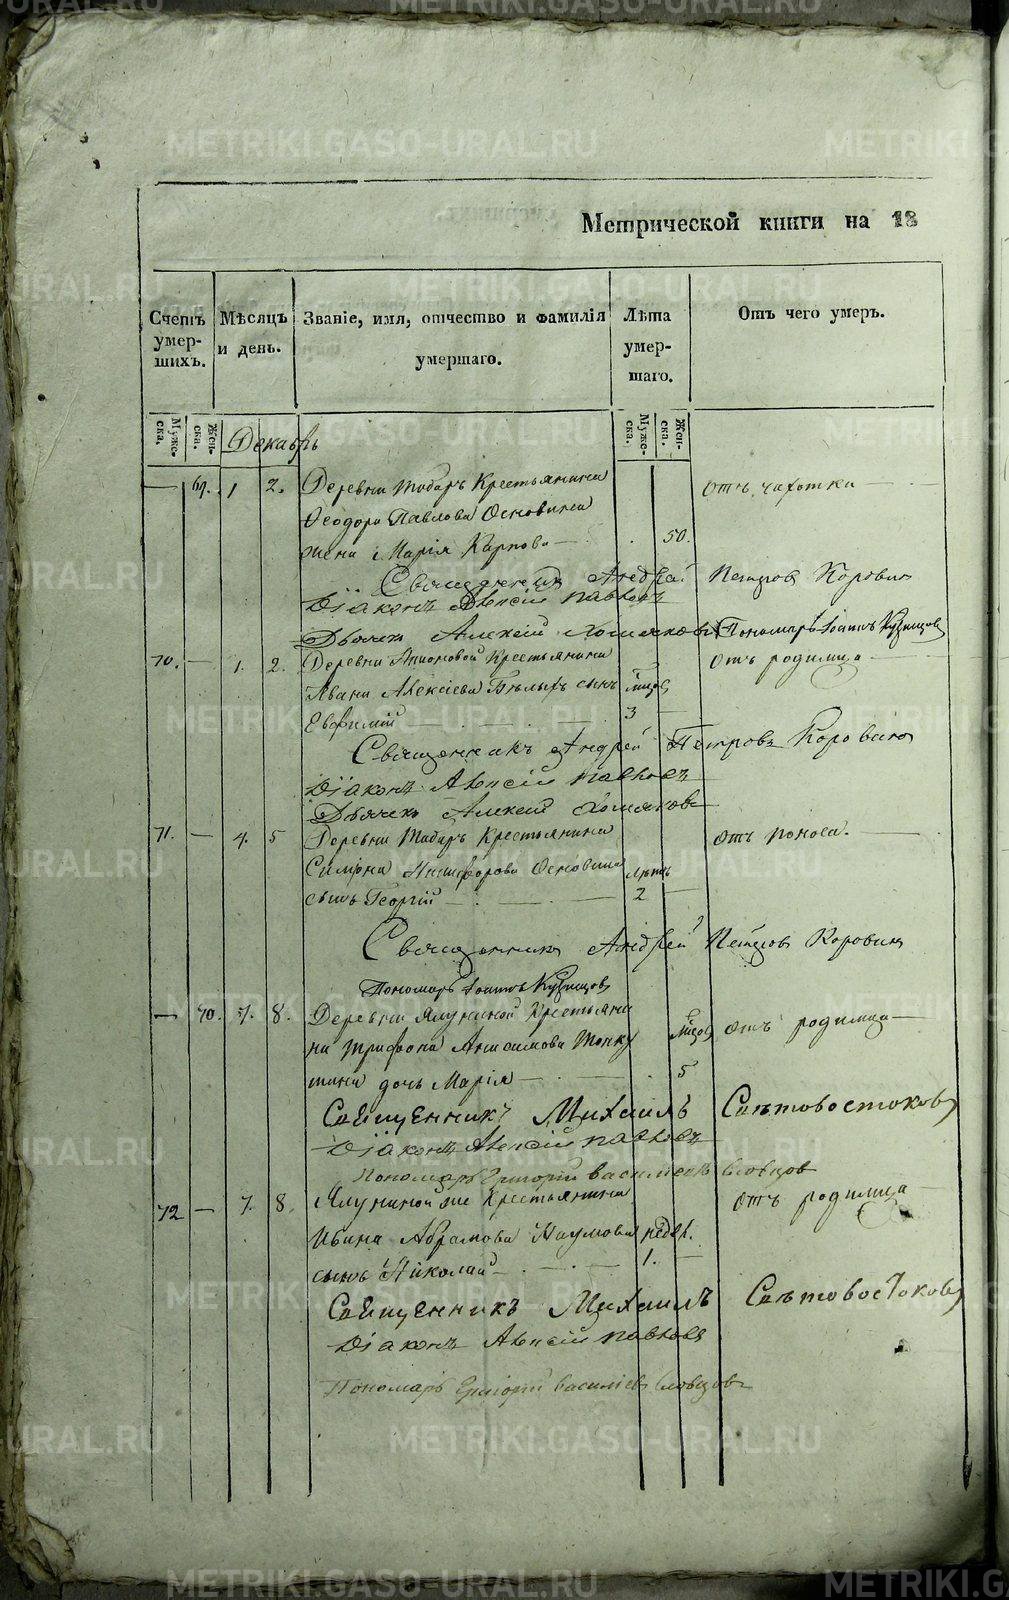 Метрической книги на 18
Счетъ умерших. Мѣсяцъ и день. Званіе, имя, отчество и фамилія умершаго. Лѣта умершаго. Отъ чего умеръ.
Мужеска. Женска. Мужеска. Женска.
Декабрь
— 69. 1 2. Деревни Табаръ Крестьянина отъ чахотки —
Ѳеодора Павлова Основина
жена Марія Карпова — 50.
Священникъ Андрей Петровъ Коровинъ
Діаконъ Алексій Павловъ
Дьячекъ Алексей Хомяковъ Пономарь Іоаннъ Кузнецовъ
70. — 1. 2. Деревни Крестьянина отъ родимца —
Ивана Алексіева Бѣлыхъ сынъ
Евфимій — 3 —
Священникъ Андрей Петровъ Коровинъ
Діаконъ Алексій Павловъ
Дьячекъ Алексей Хомяковъ
71. — 4. 5 Деревни Табаръ Крестьянина отъ поноса. —
Никифорова Основина лѣтъ
сынъ Георгій — 2 —
Священникъ Андрей Петровъ Коровинъ
Пономарь Іоаннъ Кузнецовъ
— 70. 7. 8. Деревни Ялуниной Крестьяни отъ родимца —
на Трифона Анисимова
дочь Марія — 5
Священникъ Михаилъ Свѣтовостоковъ
Діаконъ Алексій Павловъ
Пономарь Григорій Васильевъ Словцовъ
72 — 7. 8. Ялуниной же Крестьянина отъ родимца
Ивана Абрамова Наумова недел.
сынъ Николай — 1. —
Священникъ Михаилъ Свѣтовостоковъ
Діаконъ Алексій Павловъ
Пономарь Григорій Василіевъ Словцовъ
METRIKI.GASO-URAL.RU